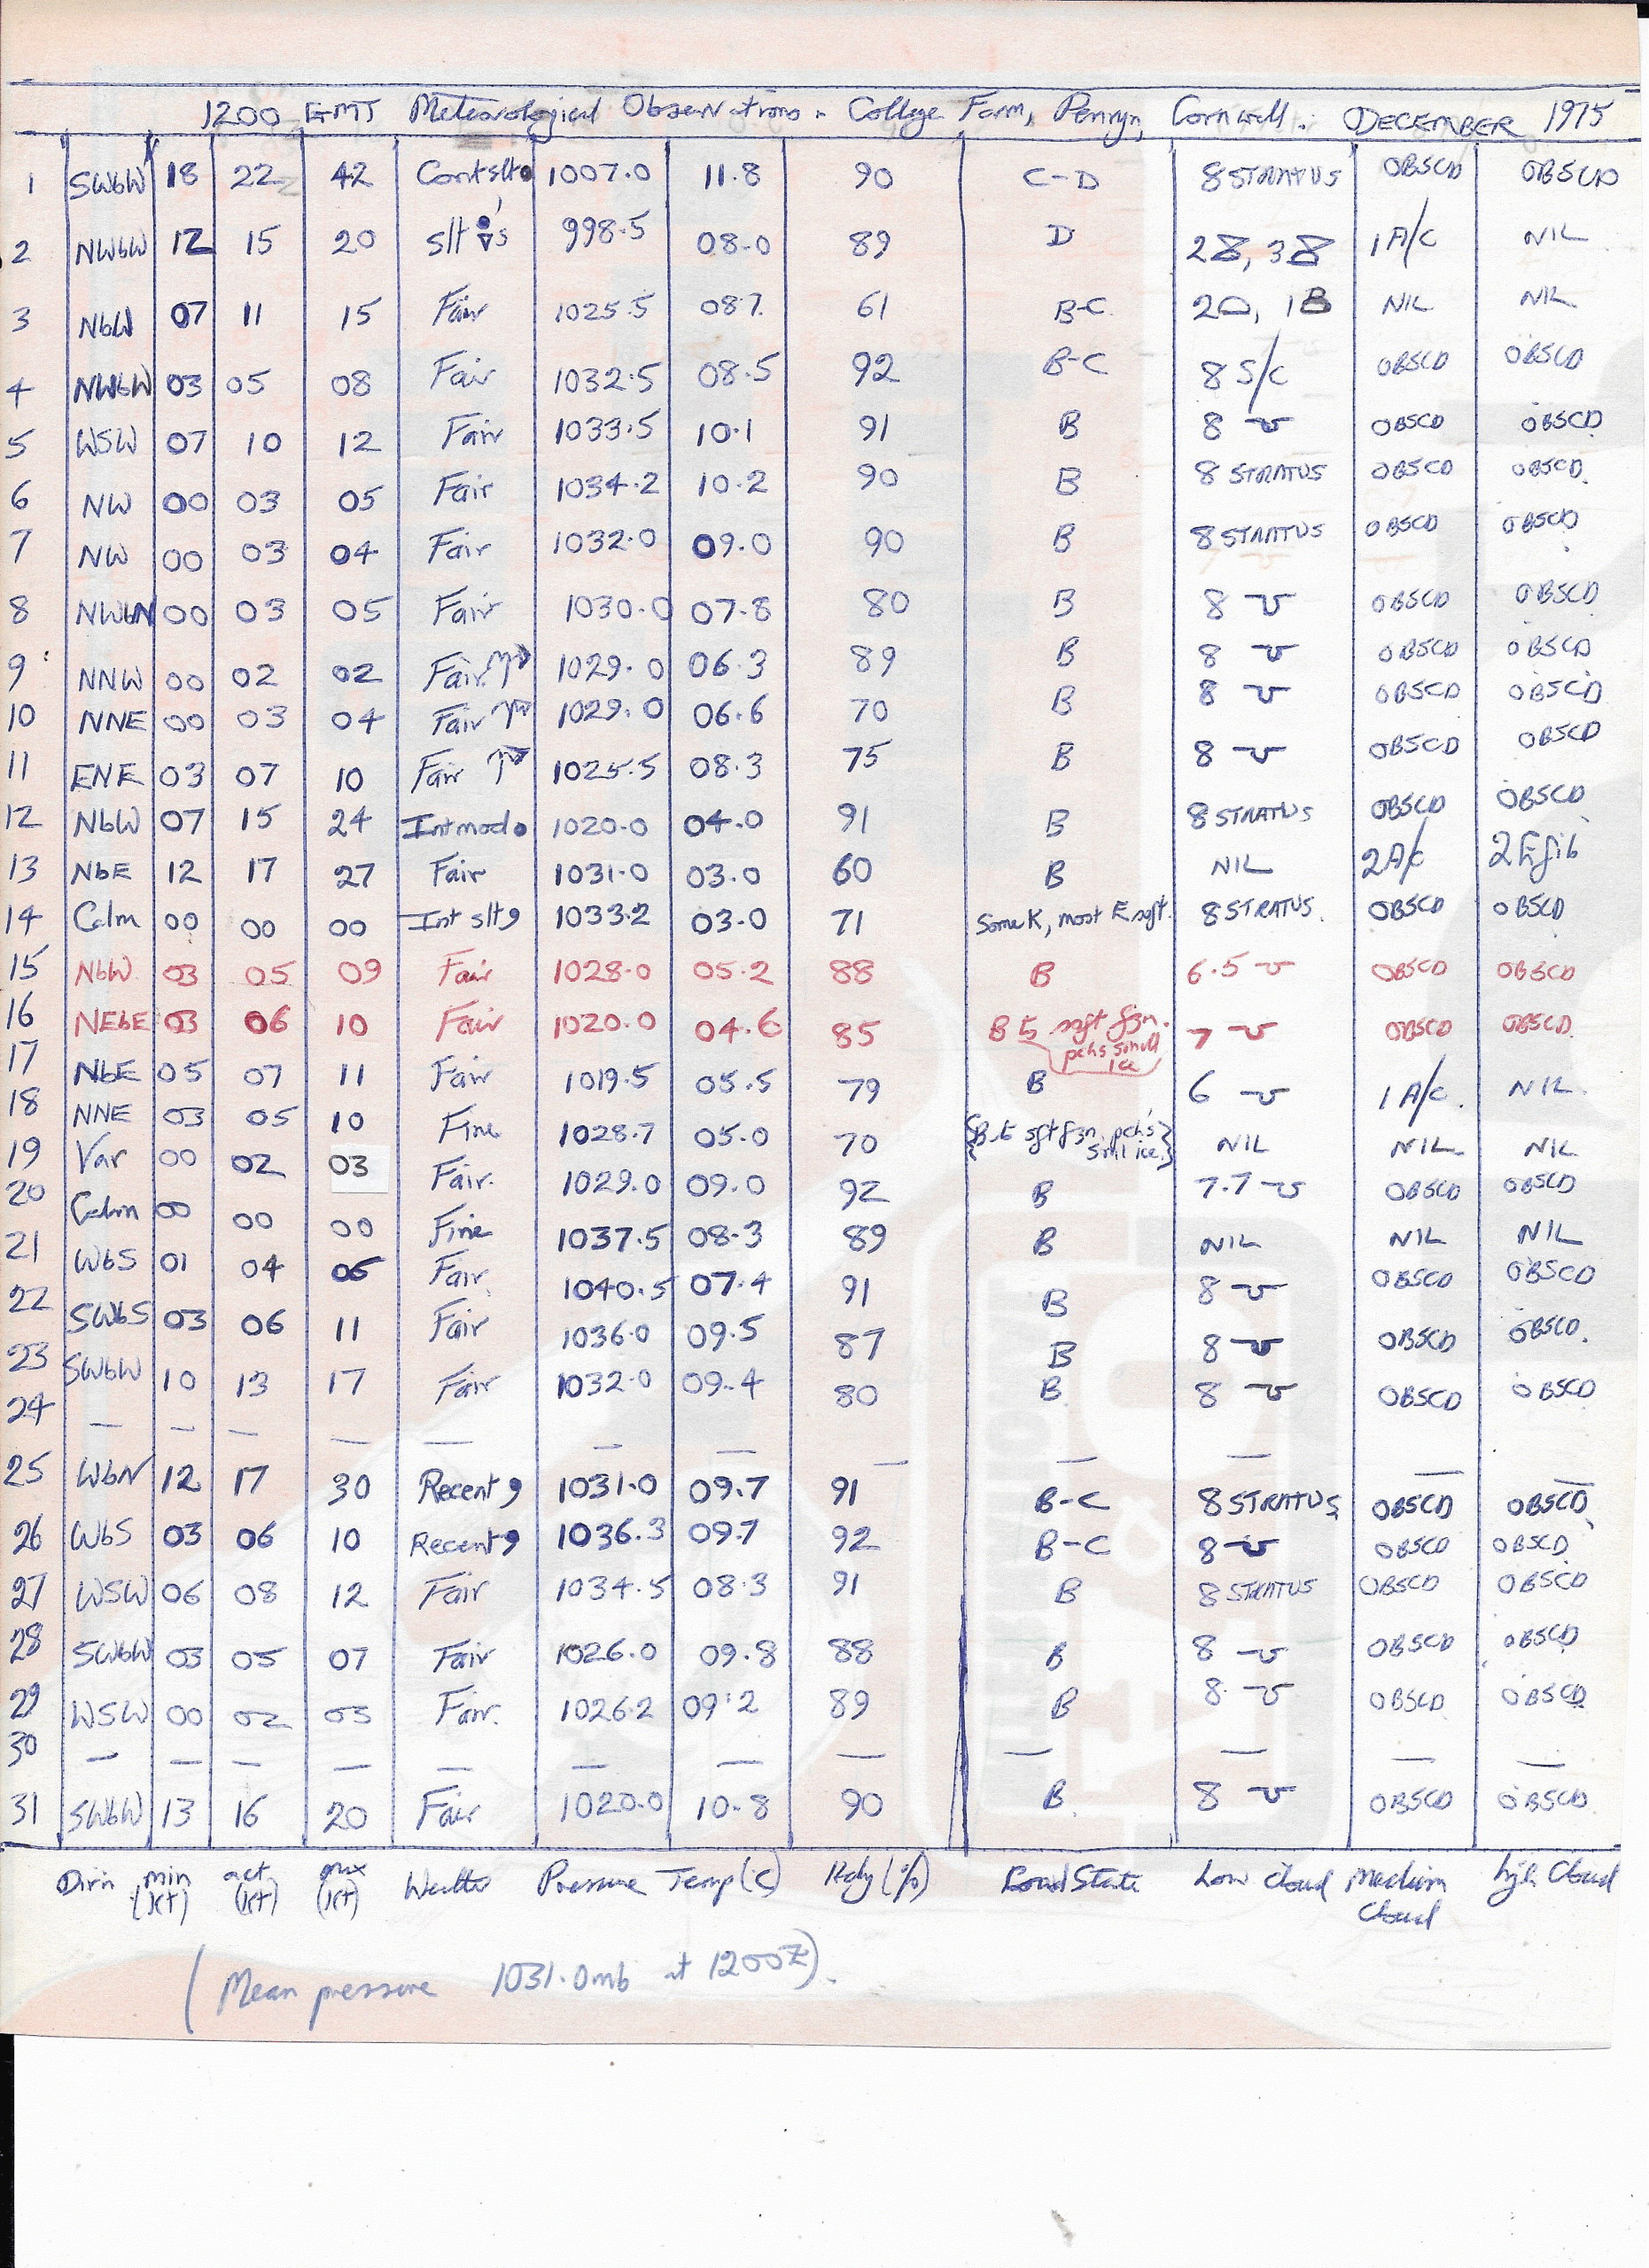 1200 GMT Meteorological Observations - College Farm, Penryn, Cornwall. DECEMBER 1975
1 SWbW 18 22 42 Cont slt 1007.0 11.8 90 C-D 8 STRATUS OBSCD OBSCD
2 NWbW 12 15 20 slt s 998.5 08.0 89 D 2 , 3 1 A/C NIL
3 NbW 07 11 15 Fair 1025.5 08.7 61 B-C 2 , 1 NIL NIL
4 NWbW 03 05 08 Fair 1032.5 08.5 92 B-C 8 S/C OBSCD OBSCD
5 WSW 07 10 12 Fair 1033.5 10.1 91 B 8 OBSCD OBSCD
6 NW 00 03 05 Fair 1034.2 10.2 90 B 8 STRATUS OBSCD OBSCD
7 NW 00 03 04 Fair 1032.0 09.0 90 B 8 STRATUS OBSCD OBSCD
8 NWbN 00 03 05 Fair 1030.0 07.8 80 B 8 OBSCD OBSCD
9 NNW 00 02 02 Fair 1029.0 06.3 89 B 8 OBSCD OBSCD
10 NNE 00 03 04 Fair 1029.0 06.6 70 B 8 OBSCD OBSCD
11 ENE 03 07 10 Fair 1025.5 08.3 75 B 8 OBSCD OBSCD
12 NbW 07 15 24 Int mod 1020.0 04.0 91 B 8 STRATUS OBSCD OBSCD
13 NbE 12 17 27 Fair 1031.0 03.0 60 B NIL 2 A/c 2
14 Calm 00 00 00 Int slt 1033.2 03.0 71 Some K, most E sgft. 8 STRATUS. OBSCD OBSCD
15 NbW 03 05 09 Fair 1028.0 05.2 88 B 6.5 OBSCD OBSCD
16 NEbE 03 06 10 Fair 1020.0 04.6 85 B 7 OBSCD OBSCD
pchs small
ice
17 NbE 05 07 11 Fair 1019.5 05.5 79 B 6 1 A/C. NIL
18 NNE 03 05 10 Fine 1028.7 05.0 70 NIL NIL NIL
19 Var 00 02 03 Fair. 1029.0 09.0 92 B 7.7 OBSCD OBSCD
20 Calm 00 00 00 Fine 1037.5 08.3 89 B NIL NIL NIL
21 WbS 01 04 06 Fair 1040.5 07.4 91 B 8 OBSCD OBSCD
22 SWbS 03 06 11 Fair 1036.0 09.5 87 B 8 OBSCD OBSCD.
23 SWbW 10 13 17 Fair 1032.0 09.4 80 B 8 OBSCD OBSCD
24 — — — — — — — — — — — —
25 WbN 12 17 30 Recent 1031.0 09.7 91 B-C 8 STRATUS OBSCD OBSCD
26 WbS 03 06 10 Recent 1036.3 09.7 92 B-C 8 OBSCD OBSCD
27 WSW 06 08 12 Fair 1034.5 08.3 91 B 8 STRATUS OBSCD OBSCD
28 SWbW 03 05 07 Fair 1026.0 09.8 88 B 8 OBSCD OBSCD
29 WSW 00 02 03 Fair. 1026.2 09.2 89 B 8 OBSCD OBSCD
30 — — — — — — — — — — —
31 SWbW 13 16 20 Fair 1020.0 10.8 90 B 8 OBSCD OBSCD
Dirn min (kt) act. (kt) max (kt) Weather Pressure Temp (C) Hdy (%) Road State Low Cloud Medium Cloud high Cloud
(Mean pressure 1031.0mb at 1200Z).